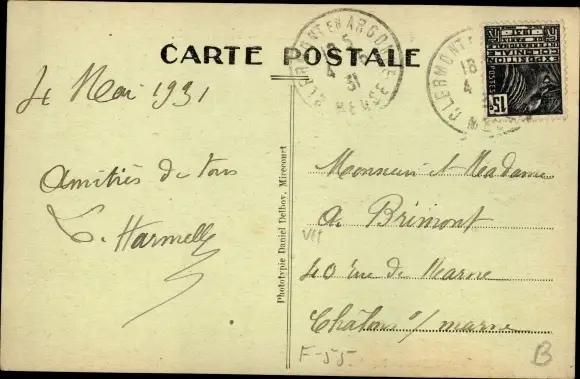 CARTE POSTALE
CLERMONT EN ARGONNE
18
4 5
31
MEUSE
CLERMONT
18
4
EXPOSITION COLONIALE INTERNATIONALE
POSTES
15c
4 Mai 1931
Amitiés de tous
L. Harmelle
Phototypie Daniel Delboy, Mirecourt
Monsieur et Madame
A. Brimont
VII
40 rue de Marne
Châlons s/ marne
F-55
B